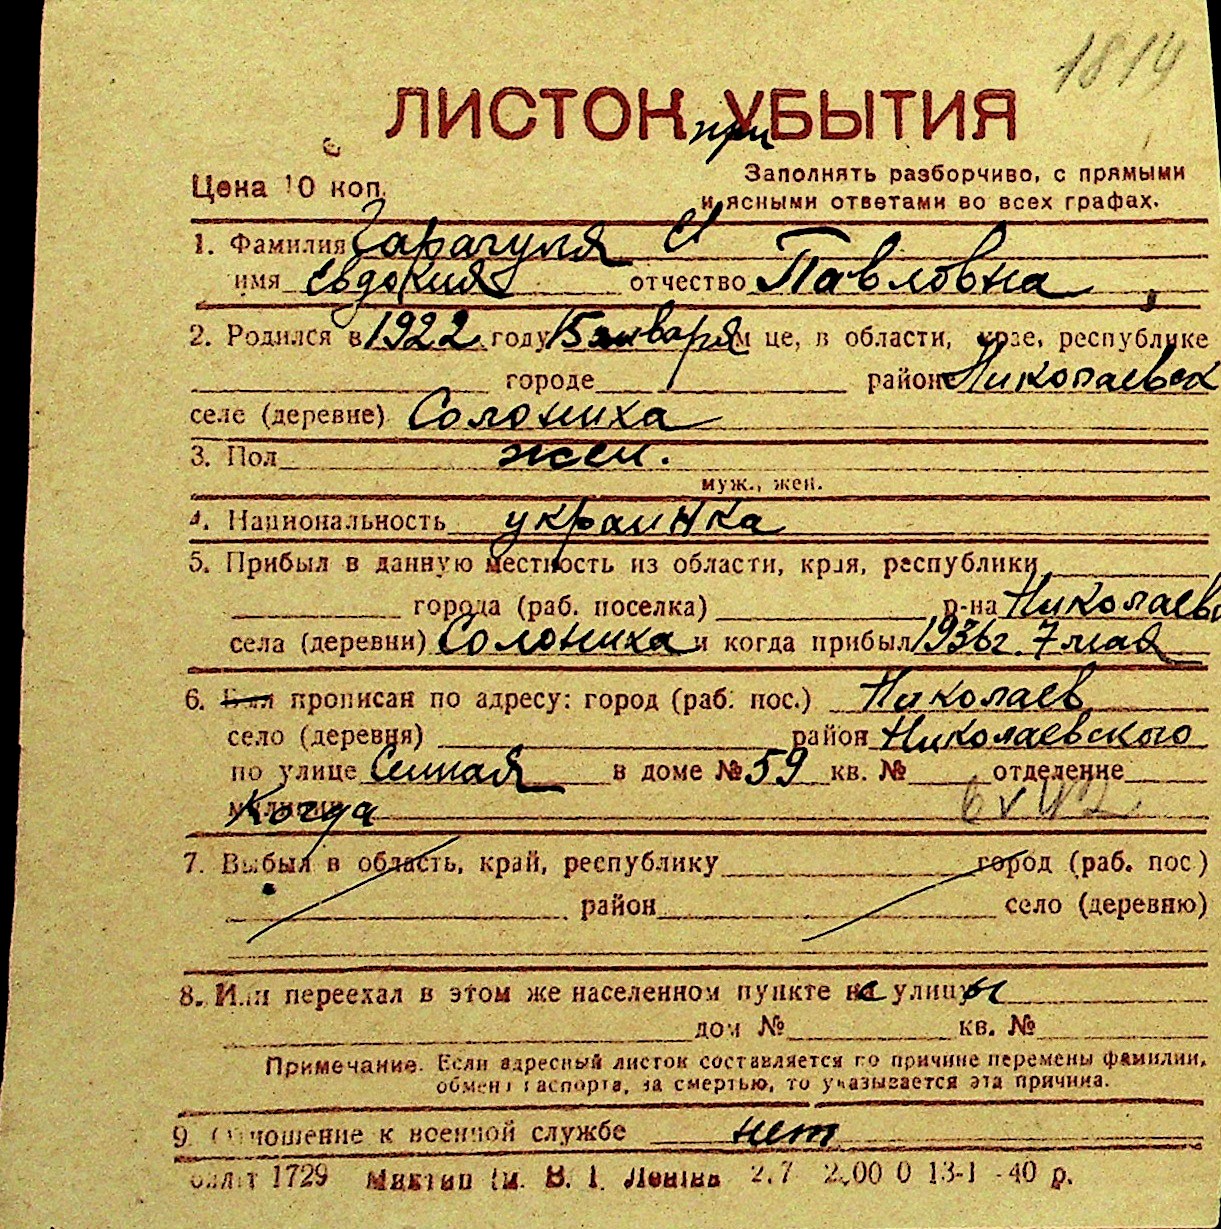 1814
ЛИСТОК УБЫТИЯ
при
Цена 10 коп.
Заполнять разборчиво, с прямыми
и ясными ответами во всех графах.
1. Фамилия Гарагуля
имя Евдокия отчество Павловна
2. Родился в 1922 году 15 января м це, в области, крае, республике
городе районе Николаевск
селе (деревне) Солониха
3. Пол жен.
муж., жен.
4. Национальность украинка
5. Прибыл в данную местность из области, края, республики
города (раб. поселка) р-на Николаевс
села (деревни) Солониха и когда прибыл 1936г. 7 мая
6. Был прописан по адресу: город (раб. пос.) Николаев
село (деревня) район Николаевского
по улице Сенная в доме № 59 кв. № отделение
милиции Когда
7. Выбыл в область, край, республику город (раб. пос)
район село (деревню)
8. Или переехал в этом же населенном пункте с улицы
дом № кв. №
Примечание. Если адресный листок составляется по причине перемены фамилии,
обмена паспорта, за смертью, то указывается эта причина.
9. Отношение к военной службе нет
1729 2.7 13-1 -40 р.